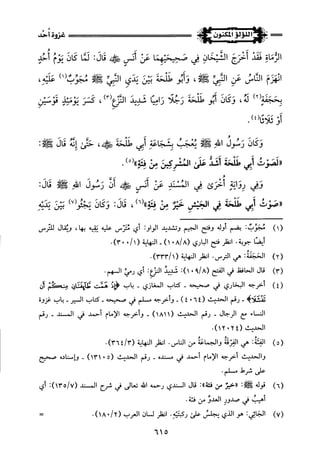 اللؤلؤ المكنون
غزوة أحد
الرُّمَاةِ فَقَدْ أَخْرَجَ الشَّيْخَانِ فِي صَحِيحَيْهِمَا عَنْ أَنَسٍ ﷺ قَالَ: لَمَّا كَانَ يَوْمُ أُحُدٍ
انْهَزَمَ النَّاسُ عَنِ النَّبِيِّ ﷺ، وَأَبُو طَلْحَةَ بَيْنَ يَدَيِ النَّبِيِّ ﷺ مُجَوِّبٌ(١) عَلَيْهِ،
بِحَجَفَةٍ(٢) لَهُ، وَكَانَ أَبُو طَلْحَةَ رَجُلًا رَامِيًا شَدِيدَ النَّزْعِ(٣)، كَسَرَ يَوْمَئِذٍ قَوْسَيْنِ
أَوْ ثَلَاثًا(٤).
وَكَانَ رَسُولُ اللهِ ﷺ يُعْجَبُ بِشَجَاعَةِ أَبِي طَلْحَةَ، حَتَّى إِنَّهُ قَالَ ﷺ:
«لَصَوْتُ أَبِي طَلْحَةَ أَشَدُّ عَلَى المُشْرِكِينَ مِنْ فِئَةٍ»(٥).
وَفِي رِوَايَةٍ أُخْرَى فِي المُسْنَدِ عَنْ أَنَسٍ أَنَّ رَسُولَ اللهِ ﷺ قَالَ:
«صَوْتُ أَبِي طَلْحَةَ فِي الجَيْشِ خَيْرٌ مِنْ فِئَةٍ»(٦)، قَالَ: وَكَانَ يَجْثُو(٧) بَيْنَ يَدَيْهِ
(١) مُجَوِّبٌ: بضم أوله وفتح الجيم وتشديد الواو: أي مُتَرِّس عليه يَقِيه بها، ويُقال للتُرس
أيضًا جوبة. انظر فتح الباري (١٠٨/٨) - النهاية (٣٠٠/١).
(٢) الحَجَفَةُ: هي الترس. انظر النهاية (٣٣٣/١).
(٣) قال الحافظ في الفتح (١٠٩/٨): شَدِيدُ النزع: أي رميُ السهم.
(٤) أخرجه البخاري في صحيحه - كتاب المغازي - باب ﴿إِذْ هَمَّت طَّائِفَتَانِ مِنكُمْ أَن
تَفْشَلَا﴾ - رقم الحديث (٤٠٦٤) - وأخرجه مسلم في صحيحه - كتاب السير - باب غزوة
النساء مع الرجال - رقم الحديث (١٨١١) - وأخرجه الإمام أحمد في المسند - رقم
الحديث (١٢٠٢٤).
(٥) الفِئَةُ: هي الفِرْقَةُ والجماعةُ من الناس. انظر النهاية (٣٦٤/٣).
والحديث أخرجه الإمام أحمد في مسنده - رقم الحديث (١٣١٠٥) - وإسناده صحيح
على شرط مسلم.
(٦) قوله ﷺ: «خيرٌ من فئة»: قال السندي رحمه الله تعالى في شرح المسند (١٣٥/٧): أي
أهيبُ في صدور العدوِّ من فئة.
(٧) الجَاثِي: هو الذي يجلسُ على ركبتَيْه. انظر لسان العرب (١٨٠/٢). =
٦١٥